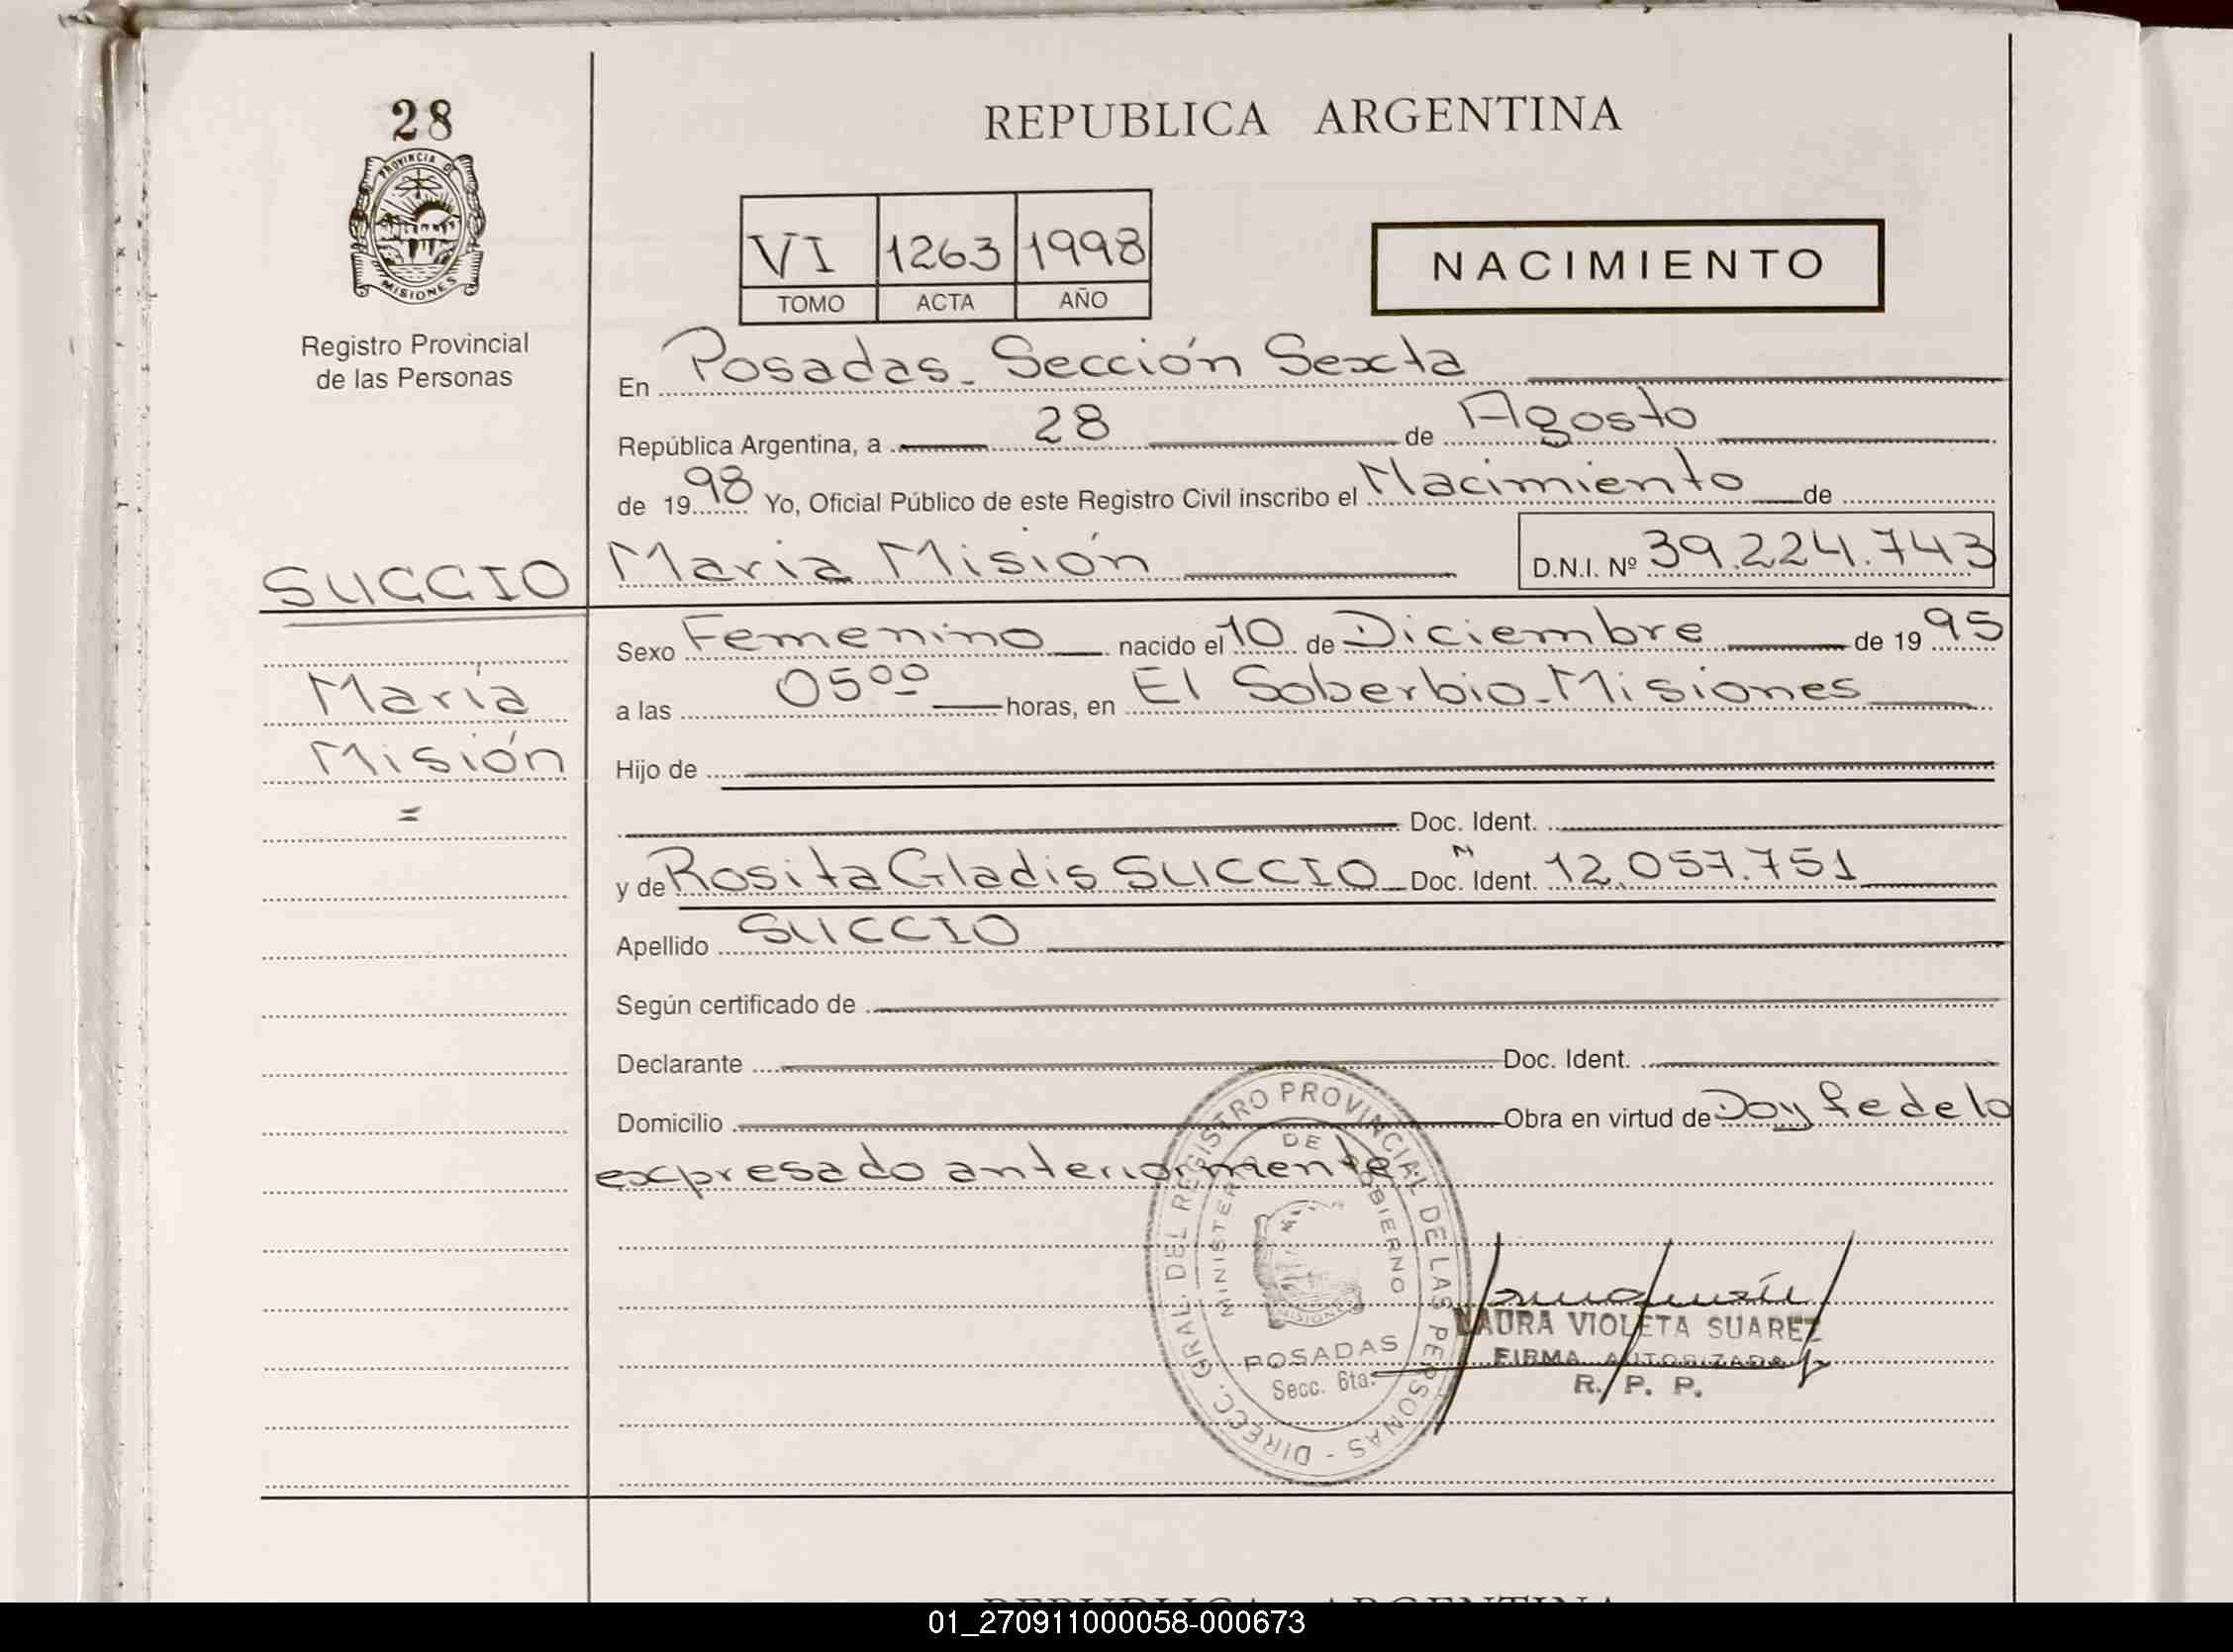 28
PROVINCIA DE
MISIONES
Registro Provincial
de las Personas
REPUBLICA ARGENTINA
VI 1263 1998
TOMO ACTA AÑO
NACIMIENTO
En Posadas. Sección Sexta
República Argentina, a 28 de Agosto
de 1998 Yo, Oficial Público de este Registro Civil inscribo el Nacimiento de
SUCCIO María Misión D.N.I. Nº 39.224.743
María
Misión
=
Sexo Femenino nacido el 10 de Diciembre de 1995
a las 05⁰⁰ horas, en El Soberbio-Misiones
Hijo de
Doc. Ident.
y de Rosita Gladis SUCCIO Doc. N Ident. 12.057.751
Apellido SUCCIO
Según certificado de
Declarante Doc. Ident.
Domicilio Obra en virtud de Doy fe de lo
expresado anteriormente
DIRECC. GRAL. DEL REGISTRO PROVINCIAL DE LAS PERSONAS -
MINISTERIO DE GOBIERNO
MISIONES
POSADAS
Secc. 6ta.
LAURA VIOLETA SUAREZ
FIRMA AUTORIZADA
R. P. P.
REPUBLICA ARGENTINA
01_270911000058-000673